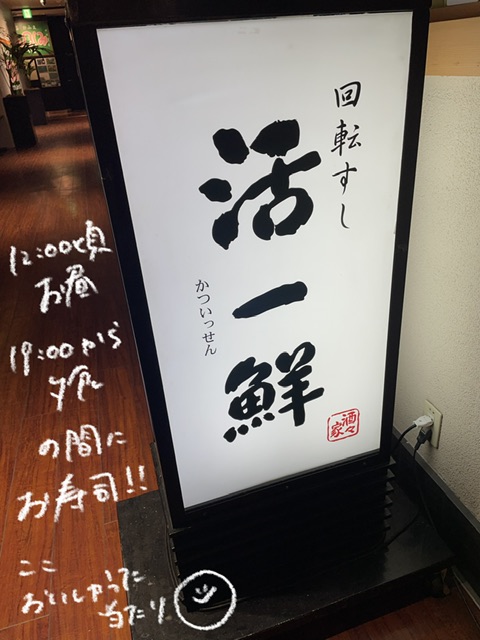 回転すし
活一鮮
かついっせん
酒々家
12:00頃
お昼
19:00から
夕食
の間に
お寿司!!
ここ
おいしかった
当たり